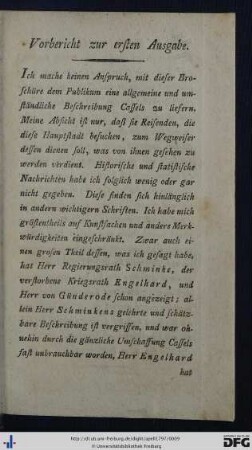 Vorbericht zur ersten Ausgabe.
Ich mache keinen Anspruch, mit dieser Bro-
schüre dem Publikum eine allgemeine und um-
ständliche Beschreibung Cassels zu liefern.
Meine Absicht ist nur, daß sie Reisenden, die
diese Hauptstadt besuchen, zum Wegweiser
dessen dienen soll, was von ihnen gesehen zu
werden verdient. Historische und statistische
Nachrichten habe ich folglich wenig oder gar
nicht gegeben. Diese finden sich hinlänglich
in andern wichtigern Schriften. Ich habe mich
größtentheils auf Kunstsachen und andere Merk-
würdigkeiten eingeschränkt. Zwar auch ei-
nen grosen Theil dessen, was ich gesagt habe,
hat Herr Regierungsrath Schminke, der
verstorbene Kriegsrath Engelhard, und
Herr von Günderode schon angezeigt; al-
lein Herr Schminkens gelehrte und schätz-
bare Beschreibung ist vergriffen, und war oh-
nehin durch die gänzliche Umschaffung Cassels
fast unbrauchbar worden, Herr Engelhard
hat
http://dl.ub.uni-freiburg.de/diglit/apell1797/0009
© Universitätsbibliothek Freiburg